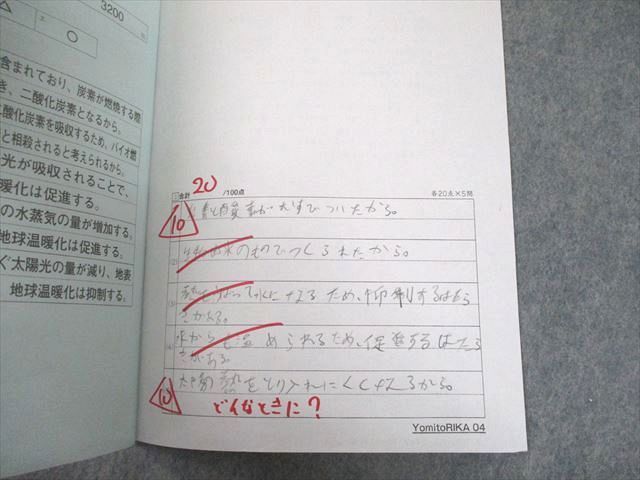 3200
△
エ
○
含まれており、炭素が燃焼する際
き、二酸化炭素となるから。
酸化炭素を吸収するため、バイオ燃
と相殺されると考えられるから。
光が吸収されることで、
暖化は促進する。
の水蒸気の量が増加する。
地球温暖化は促進する。
ぐ太陽光の量が減り、地表
地球温暖化は抑制する。
合計 20 /100点
各20点×5問
10
素が むすびついたから。
(2) のものでつくられたから。
(3) になるため、抑制するはたら
きがある。
(4) められるため、促進するはたら
きがある。
10
太陽熱をとり入れにくくなるから。
どんなときに?
YomitoRIKA 04